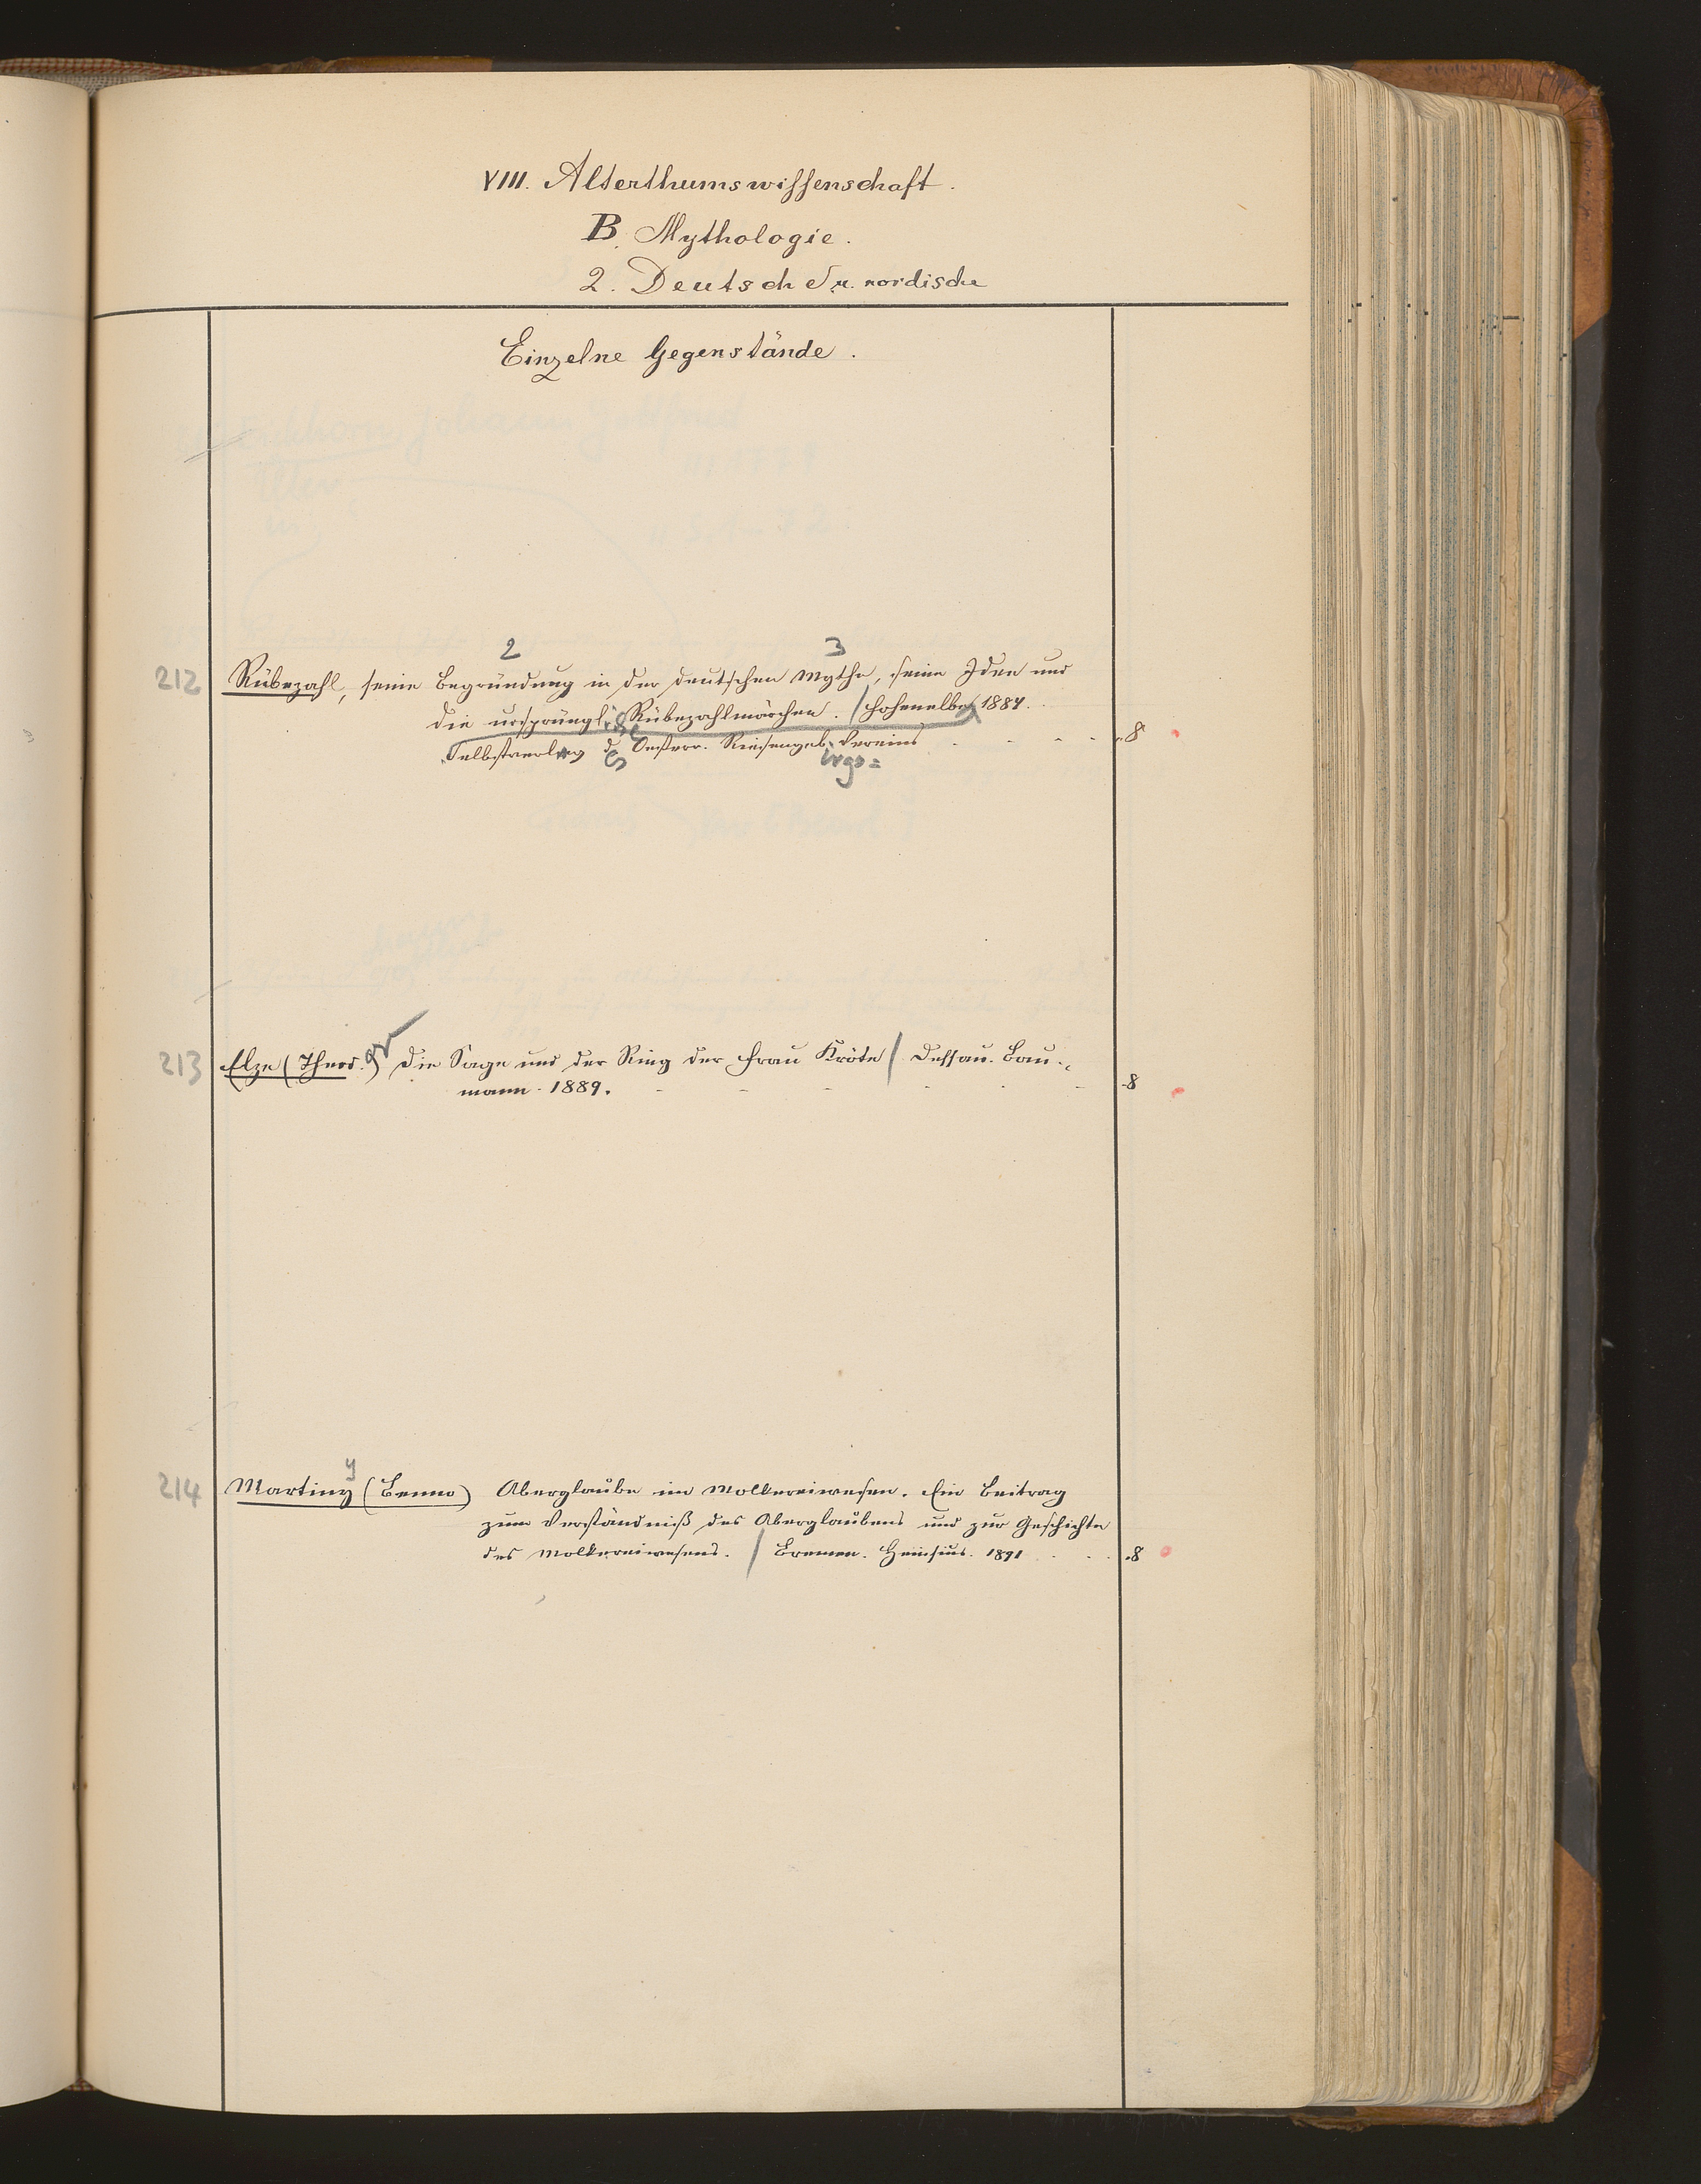 VIII. Alterthumswissenschaft.
B. Mythologie.
2. Deutsche u. nordische
Einzelne Gegenstände.
2 3
212 Rübezahl, seine Begründung in der deutschen Mythe, seine Idee und
die ursprüngl. Rübezahlmärchen. / Hohenelbe 1884.
Selbstverlag d. Oesterr. Riesengeb. Vereins . . . . 8
es irgs=
213 Elze (Theod.) Die Sage und der Ring der Frau Kröte / Dessau. Bau-
mann. 1889. 8
y
214 Martiny (Benno) Aberglaube im Molkereiwesen. Ein Beitrag
zum Verständniß des Aberglaubens und zur Geschichte
des Molkereiwesens. / Bremen. Heinsius. 1891 . . . 8